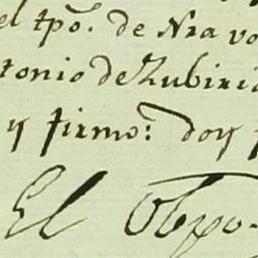 el tpo. de Nra vo
tonio de Zubiri
y firmo: doy
El Obpo.